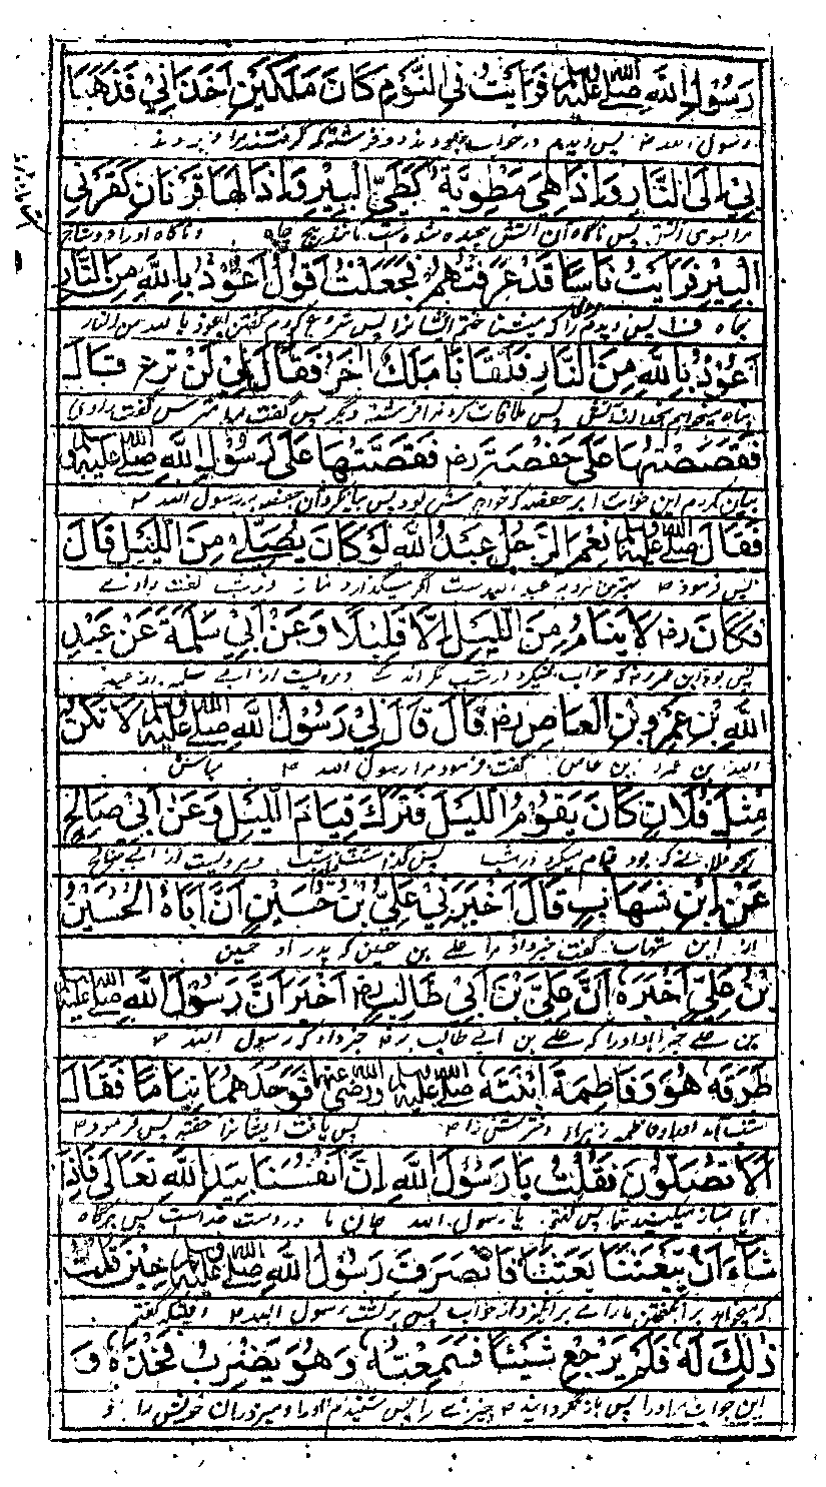 رَسُوْلِ اللهِ صلى الله عليه وسلم فَرَاَيْتُ فِي النَّوْمِ كَانَ مَلَكَيْنِ اَخَذَانِيْ فَذَهَبَا
رسول الله ص پس دیدم در خواب دو فرشته که گرفتند مرا و بردند
بِيْ اِلَى النَّارِ وَاِذَا هِيَ مَطْوِيَّةٌ كَطَيِّ الْبِيْرِ وَاِذَا لَهَا قَرْنَانِ كَقَرْنَيِ
مرا بسوی آتش پس ناگاه آن آتش پیچیده شده است مانند پیچ چاه و ناگاه او را دو شاخ
الْبِيْرِ فَرَاَيْتُ نَاسًا قَدْ عَرَفْتُهُمْ فَجَعَلْتُ اَقُوْلُ اَعُوْذُ بِاللهِ مِنَ النَّارِ
چاه پس دیدم را که پس شروع کردم گفتن اعوذ بالله من النار
اَعُوْذُ بِاللهِ مِنَ النَّارِ فَلَقَانَا مَلَكٌ اٰخَرُ فَقَالَ لِيْ لَنْ تُرَعْ قَالَ
پناه میخواهم بخدا از آتش پس ملاقات کرد مرا فرشته دیگر پس گفت مرا مترس گفت راوی
فَقَصَصْتُهَا عَلٰى حَفْصَةَ رض فَقَصَّتْهَا عَلٰى رَسُوْلِ اللهِ صلى الله عليه وسلم
بیان کردم این خواب را بر حفصه که خواهرش بود پس بیان کرد آن حفصه بر رسول الله ص
فَقَالَ صلى الله عليه وسلم نِعْمَ الرَّجُلُ عَبْدُ اللهِ لَوْ كَانَ يُصَلِّيْ مِنَ اللَّيْلِ قَالَ
پس فرمود ص بهترین مرد عبد الله است اگر میگذارد نماز در شب گفت راوی
فَكَانَ رض لَا يَنَامُ مِنَ اللَّيْلِ اِلَّا قَلِيْلًا وَعَنْ اَبِيْ سَلَمَةَ عَنْ عَبْدِ
پس بود ابن عمر که خواب نمیکرد از شب مگر اندکی و مرویست از ابی سلمه از عبد
اللهِ بْنِ عَمْرِو بْنِ الْعَاصِ رض قَالَ قَالَ لِيْ رَسُوْلُ اللهِ صلى الله عليه وسلم لَا تَكُنْ
الله بن عمرو بن عاص گفت فرمود مرا رسول الله ص مباش
مِثْلَ فُلَانٍ كَانَ يَقُوْمُ اللَّيْلَ فَتَرَكَ قِيَامَ اللَّيْلِ وَعَنْ اَبِيْ صَالِحٍ
همچو فلانی که بود قیام میکرد در شب پس گذاشت و مرویست از ابی صالح
عَنْ اِبْنِ شَهَابٍ قَالَ اَخْبَرَنِيْ عَلِيُّ بْنُ حُسَيْنٍ اَنَّ اَبَاهُ الْحُسَيْنَ
از ابن شهاب گفت خبر داد مرا علی بن حسین که پدر او حسین
بْنَ عَلِيٍّ اَخْبَرَهٗ اَنَّ عَلِيَّ بْنَ اَبِيْ طَالِبٍ رض اَخْبَرَ اَنَّ رَسُوْلَ اللهِ صلى الله عليه وسلم
بن علی خبر داد او را که علی بن ابی طالب رض خبر داد که رسول الله ص
طَرَقَهٗ هُوَ وَفَاطِمَةَ ابْنَتَهٗ صلى الله عليه وسلم ورضي الله عنها فَوَجَدَهُمَا نِيَامًا فَقَالَ
شب آمد او را و فاطمه دخترش را ص پس یافت ایشانرا خفته پس فرمود ص
اَلَا تُصَلُّوْنَ فَقُلْتُ يَا رَسُوْلَ اللهِ اِنَّ اَنْفُسَنَا بِيَدِ اللهِ تَعَالٰى فَاِذَا
آیا نماز نمیکنید شما پس گفتم یا رسول الله جان ما در دست خداست پس هرگاه
شَاءَ اَنْ يَّبْعَثَنَا بَعَثَنَا فَانْصَرَفَ رَسُوْلُ اللهِ صلى الله عليه وسلم حِيْنَ قُلْتُ
که میخواهد برانگیختن ما را می برانگیزد از خواب پس برگشت رسول الله ص وقتیکه گفتم
ذٰلِكَ لَهٗ فَلَمْ يَرْجِعْ شَيْئًا فَسَمِعْتُهٗ وَهُوَ يَضْرِبُ فَخِذَهٗ وَ
این جواب را او را پس باز نگردانید ص چیزی را پس شنیدم او را و میزد ران خویش را و